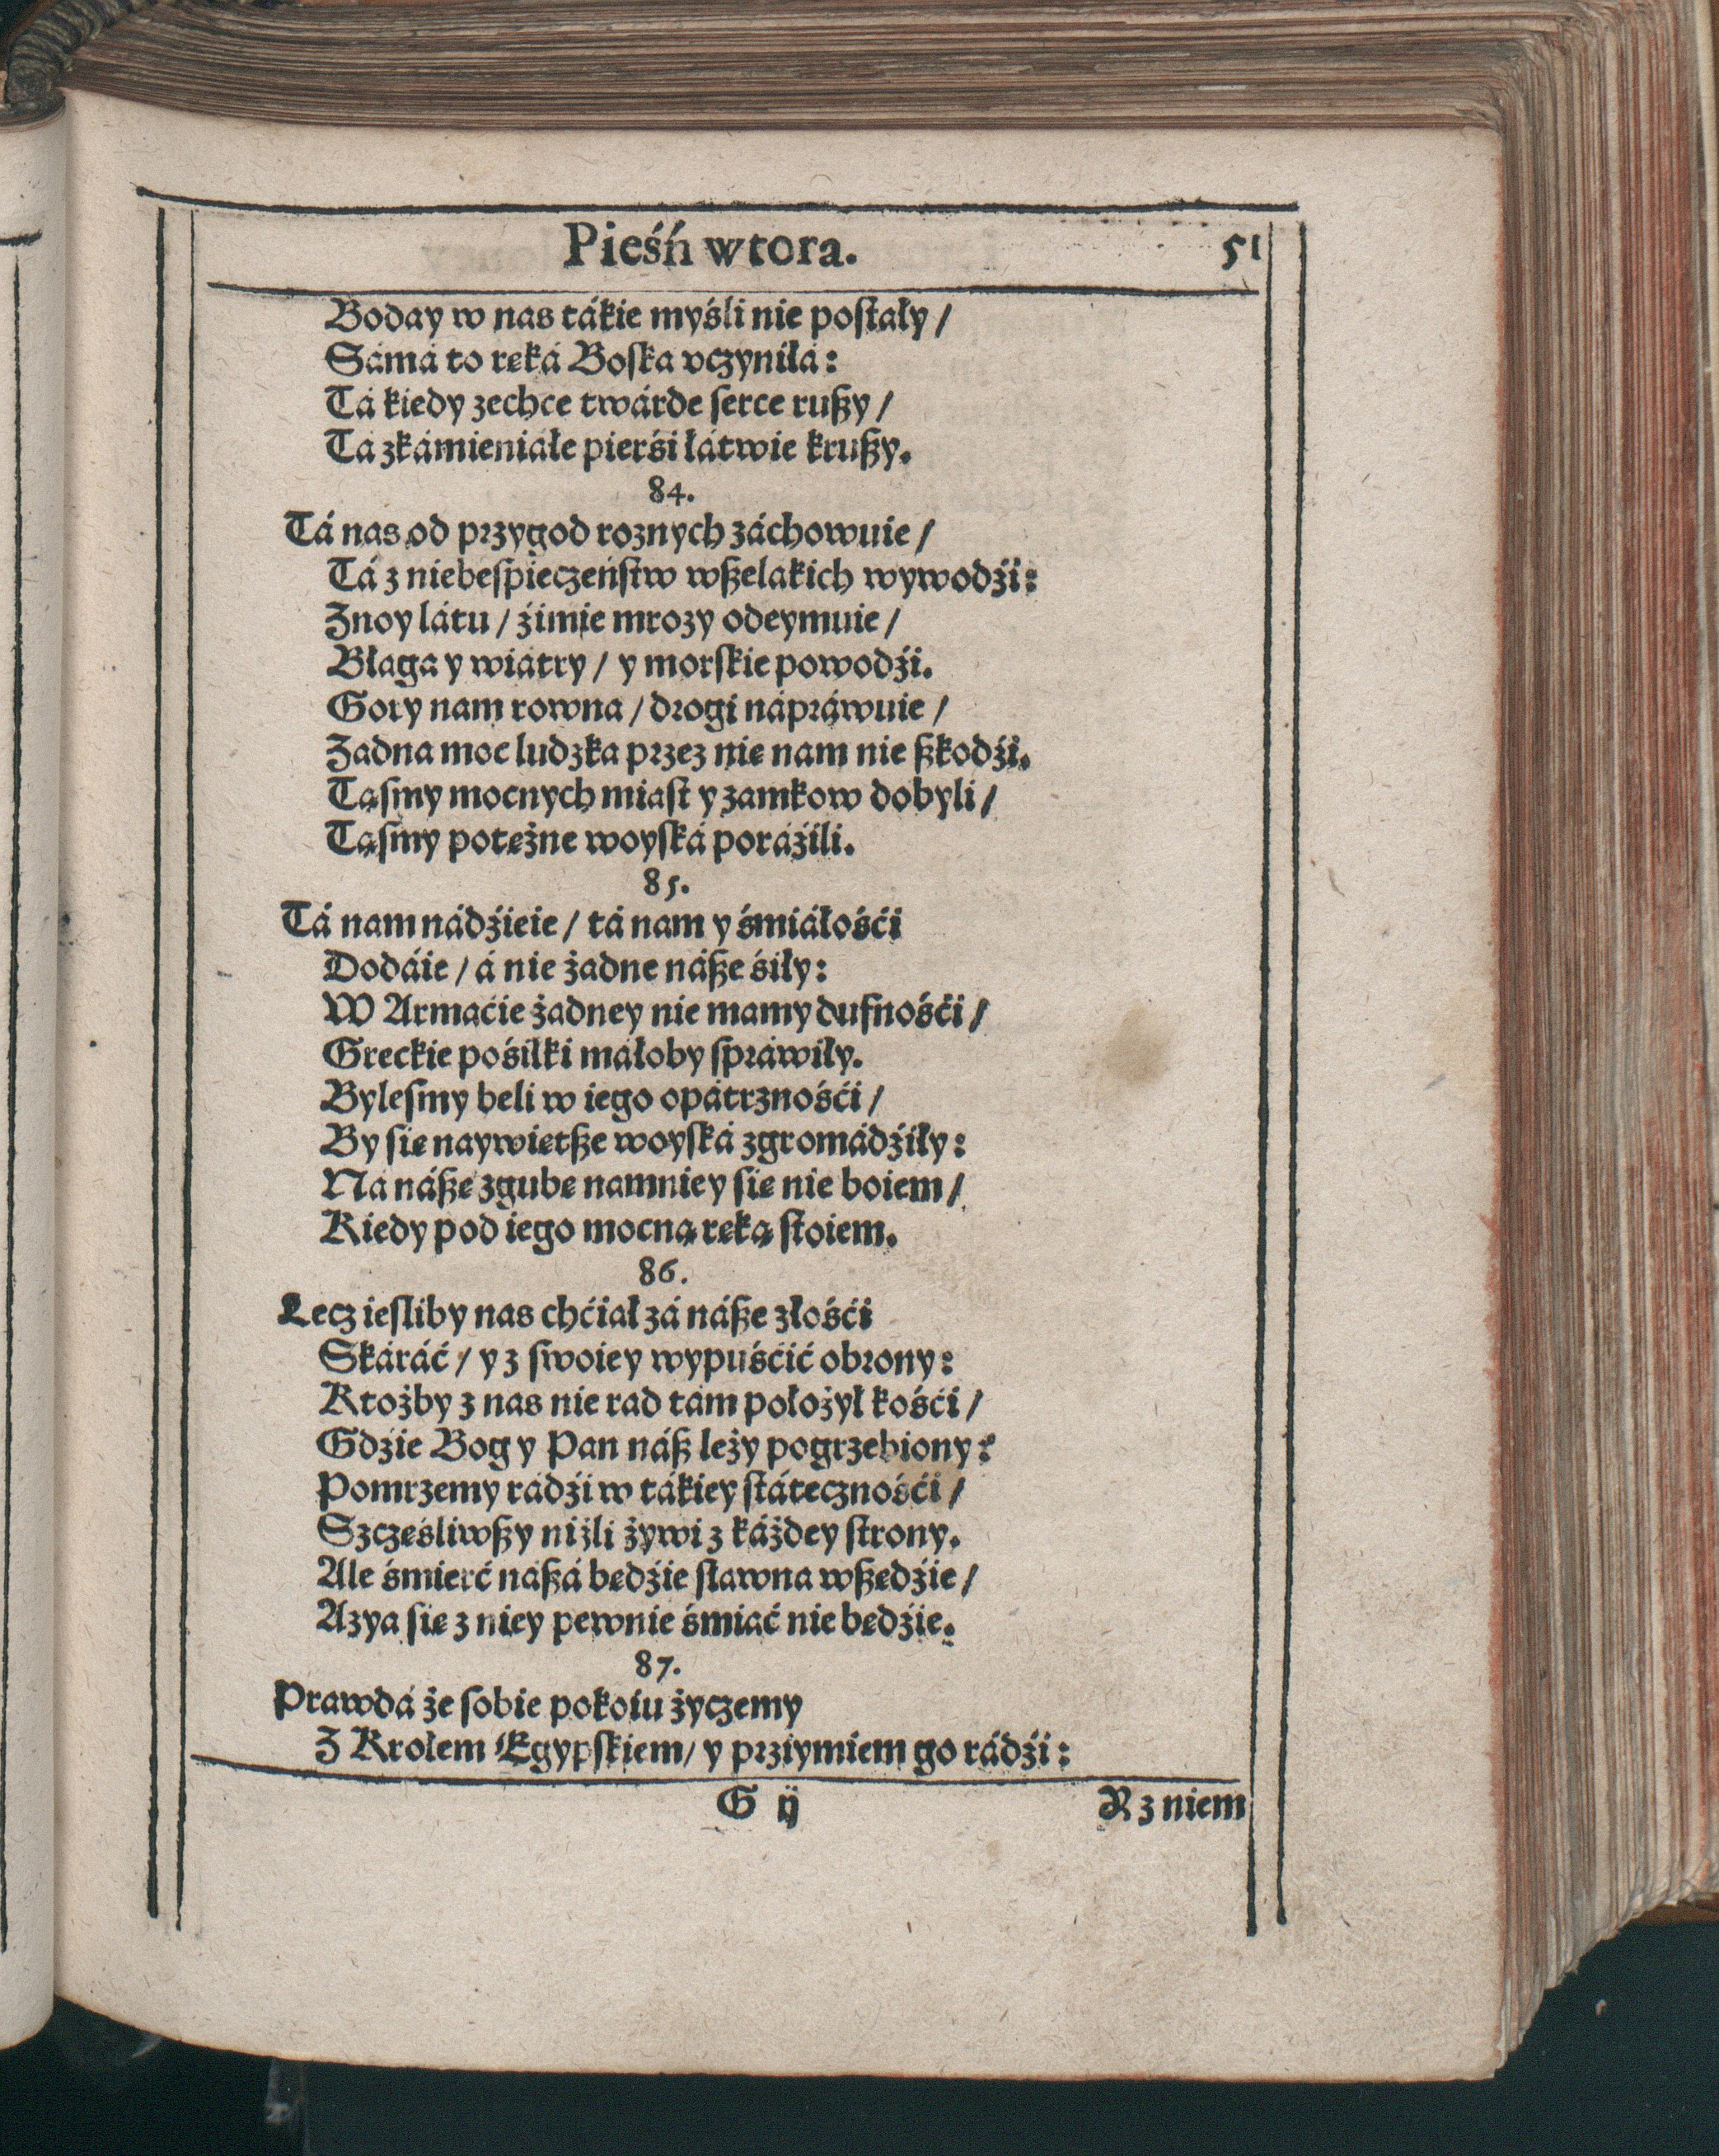 Pieśń wtora. 51
Boday w nas tákie myśli nie postały /
Sámá to ręká Boska vczyniłá:
Tá kiedy zechce twárde serce rußy /
Tá zkámieniáłe pierśi łátwie krußy.
84.
Tá nas od przygod roznych záchowuie /
Tá z niebespieczeństw wßelakich wywodźi:
Znoy látu / źimie mrozy odeymuie /
Błaga y wiátry / y morskie powodźi.
Gory nam rowna / drogi nápráwuie /
Zadna moc ludzka przez nię nam nie ßkodźi.
Tąsmy mocnych miast y zamkow dobyli /
Tąsmy potężne woyská poráźili.
85.
Tá nam nádźieię / tá nam y śmiáłośći
Dodáie / á nie żadne náße śiły:
W Armaćie żadney nie mamy dufnośći /
Greckie pośiłki máłoby spráwiły.
Bylesmy beli w iego opátrznośći /
By się naywiętße woyská zgromádźiły:
Na náßę zgubę namniey się nie boiem /
Kiedy pod iego mocną ręką stoiem.
86.
Lecz iesliby nas chćiał zá náße złośći
Skáráć / y z swoiey wypuśćić obrony:
Ktożby z nas nie rad tám położył kośći /
Gdzie Bog y Pan náß leży pogrzebiony:
Pomrzemy rádźi w tákiey státecznośći /
Szczęśliwßy niżli żywi z káżdey strony.
Ale śmierć náßá będźie sławna wßędźie /
Azya się z niey pewnie śmiać nie będźie.
87.
Prawdá że sobie pokoiu życzemy
Z Krolem Egypskiem / y przyimiem go rádźi:
G ij A z niem